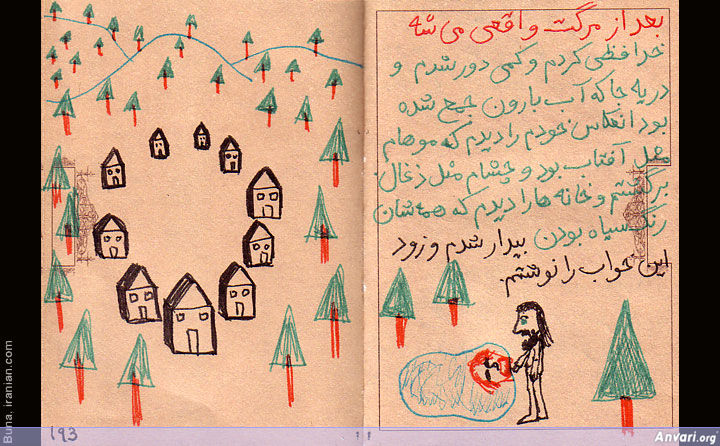 بعد از مرگت واقعی می شه
خدافظی کردم و کمی دور شدم و
در یه جا که آب بارون جمع شده
بود انعکاس خودم را دیدم که موهام
مثل آفتاب بود و چشام مثل ذغال
برگشتم و خانه ها را دیدم که همه شان
رنگ سیاه بودن بیدار شدم و زود
این خواب را نوشتم.
193
Buna. iranian.com
Anvari.org